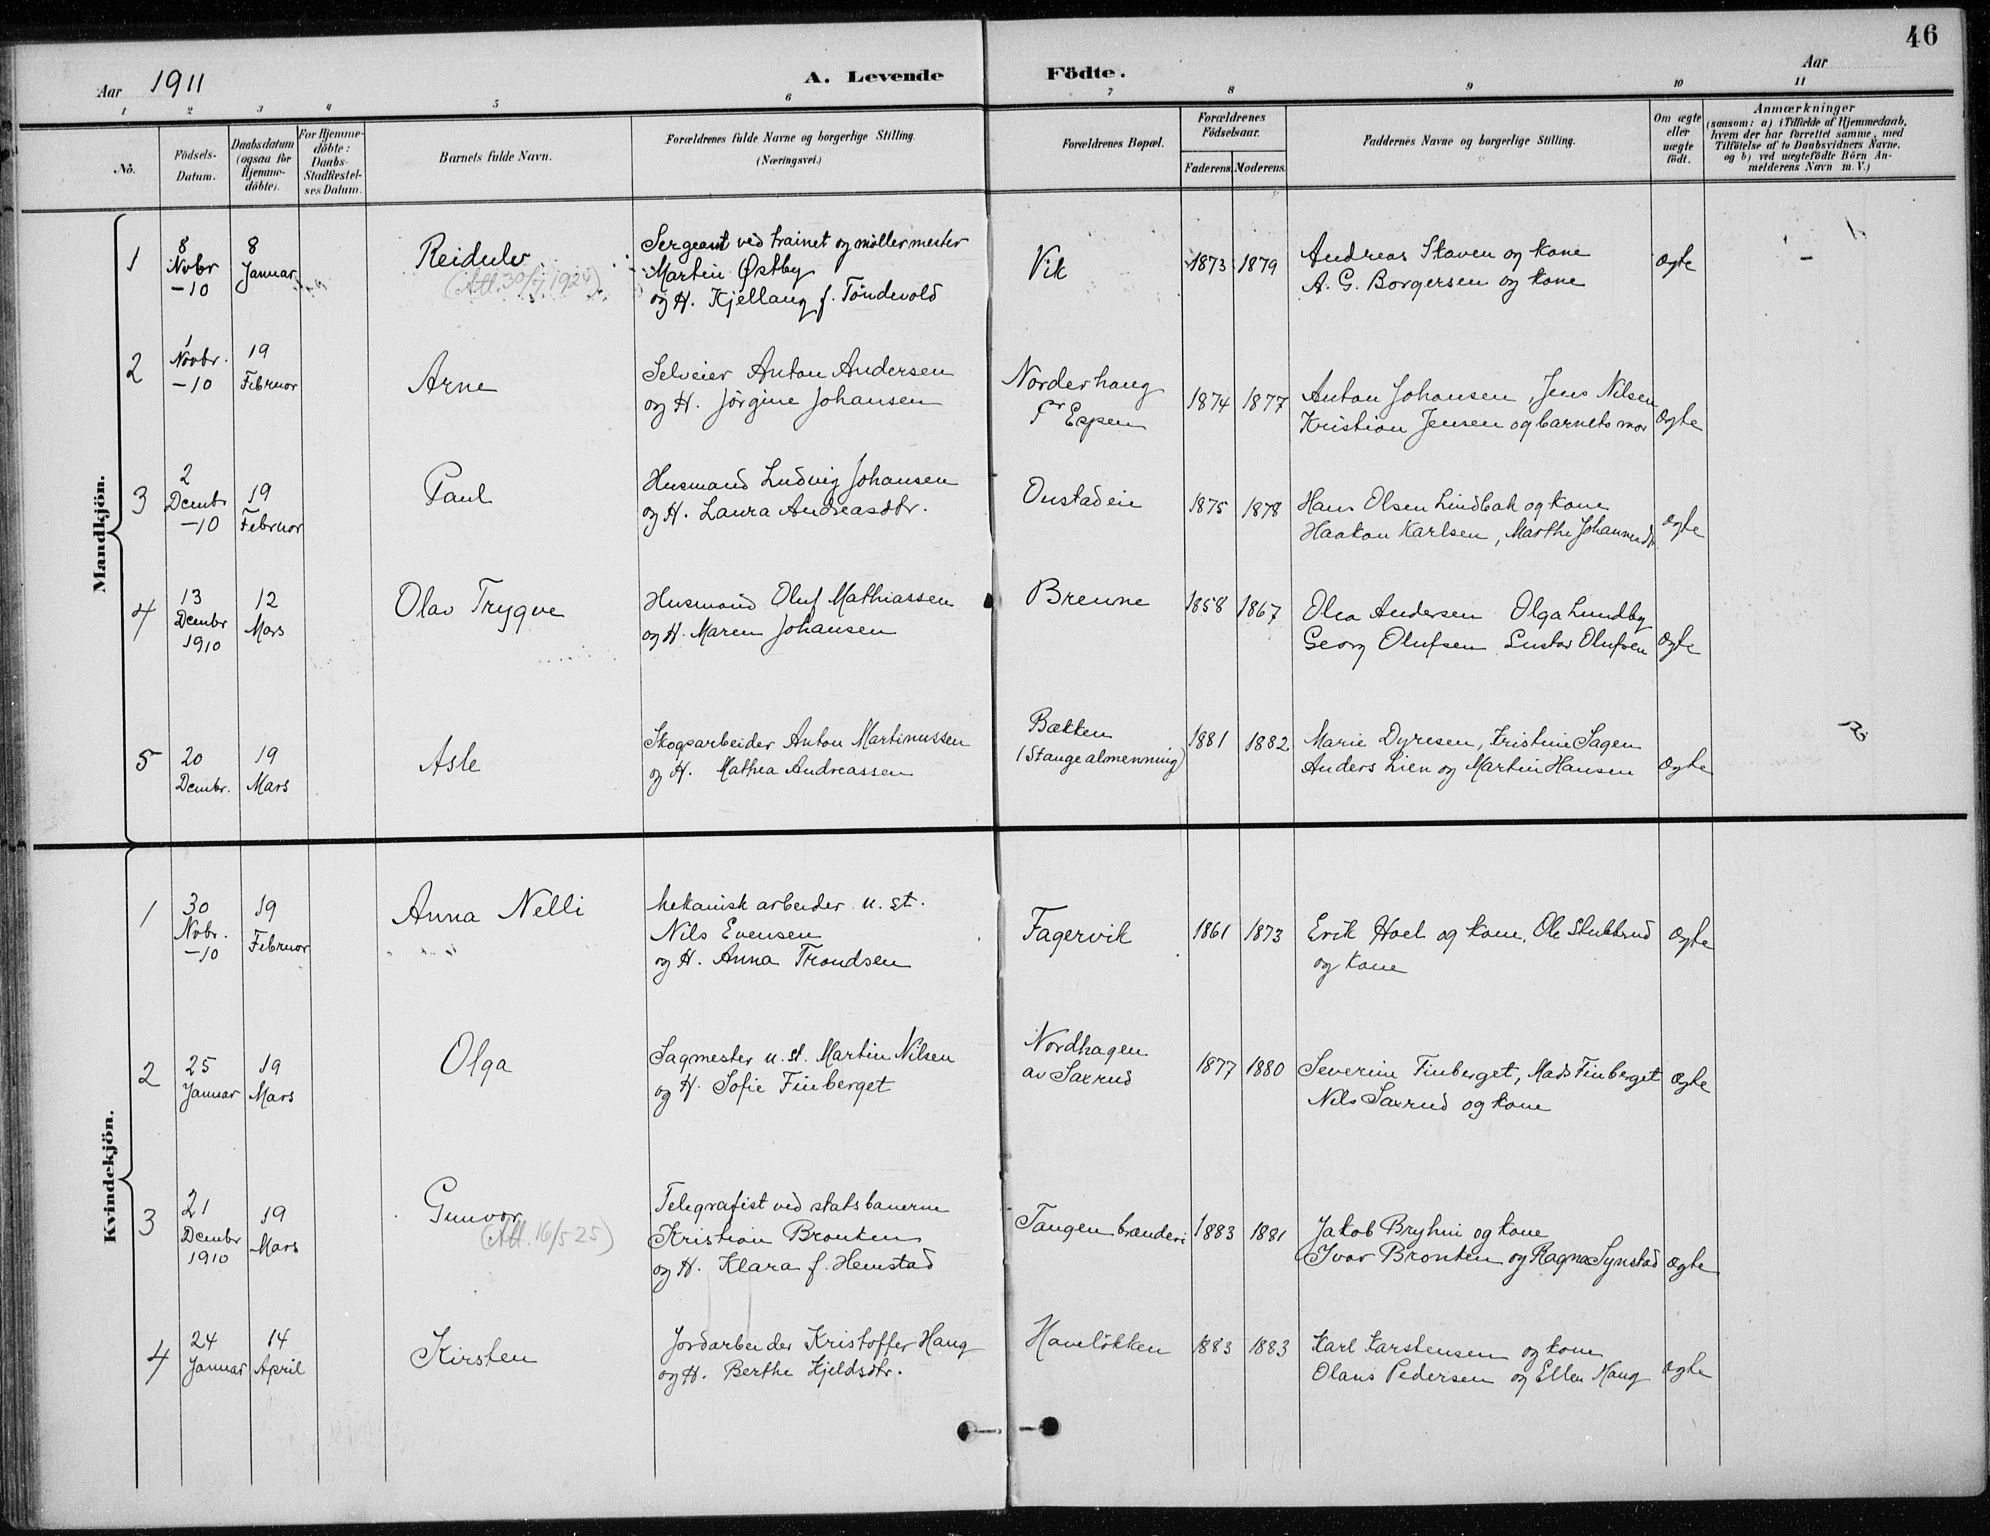 46
Aar 1911
A. Levende Födte.
Aar
1 2 3 4 5 6 7 8 9 10 11
No.
Födsels-Datum.
Daabsdatum (ogsaa for Hjemme-döbte).
For Hjemme-döbte: Daabs-Stadfæstel-ses Datum.
Barnets fulde Navn.
Forældrenes fulde Navne og borgerlige Stilling. (Næringsvei.)
Forældrenes Bopæl.
Forældrenes Födselsaar.
Faderens. Moderens.
Faddernes Navne og borgerlige Stilling.
Om ægte eller uægte födt.
Anmærkninger
(saasom: a) i Tilfælde af Hjemmedaab,
hvem der har forrettet samme, med
Tilföielse af to Daabsvidners Navne,
og b) ved uægtefödte Börn An-
melderens Navn m. V.)
Mandkjön.
1
8 Novbr -10
8 Januar
Reidulv
(Att. 30/7 1924)
Sergeant ved trainet og møllermester
Martin Østby
og H. Kjellaug f. Töndevold
Vik
1873 1879
Andreas Skaven og kone
A. G. Borgersen og kone
ægte
-
2
1 Novbr. -10
19 Februar
Arne
Selveier Anton Andersen
og H. Jörgine Johansen
Norderhaug
pr Espen
1874 1877
Anton Johansen, Jens Nilsen
Kristian Jensen og barnets mor
ægte
3
2 Decmbr -10
19 Februar
Paul
Husmand Ludvig Johansen
og H. Laura Andreasdtr.
Onstadeie
1875 1878
Hans Olsen Lindbak og kone
Haakon Karlsen, Marthe Johannesdtr.
ægte
4
13 Decmbr 1910
12 Mars
Olav Trygve
Husmand Oluf Mathiassen
og H. Maren Johansen
Brenne
1858 1867
Olea Andersen Olga Lundby
Georg Olufsen Gustav Olufsen
ægte
5
20 Decmbr.
19 Mars
Asle
Skogsarbeider Anton Martinussen
og H. Mathea Andreassen
Bækken
(Stange almenning)
1881 1882
Marie Dyresen, Kristine Sagen
Anders Lien og Martin Hansen
ægte
Kvindekjön.
1
30 Novbr. -10
19 Februar
Anna Nelli
Mekanisk arbeider u. st.
Nils Evensen
og H. Anna Trondsen
Fagervik
1861 1873
Erik Hoel og kone, Ole Stubbrud
og kone
ægte
2
25 Januar
19 Mars
Olga
Sagmester u. st. Martin Nilsen
og H. Sofie Finberget
Nordhagen
av Saxrud
1877 1880
Severine Finberget, Mads Finberget
Nils Saxrud og kone
ægte
3
21 Decmbr 1910
19 Mars
Gunvor
(Att. 16/5 25)
Telegrafist ved statsbanerne
Kristian Bronken
og H. Klara f. Hemstad
Tangen brænderi
1883 1881
Jakob Bryhni og kone
Ivar Bronken og Ragna Synstad
ægte
4
24 Januar
14 April
Kirsten
Jordarbeider Kristoffer Haug
og H. Berthe Kjeldsdtr.
Haveløkken
1883 1883
Karl Karstensen og kone
Olaus Pedersen og Ellen Haug
ægte